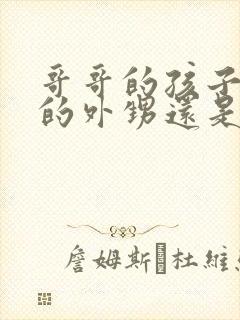 哥哥的孩子
的外甥還是
詹姆斯 杜維